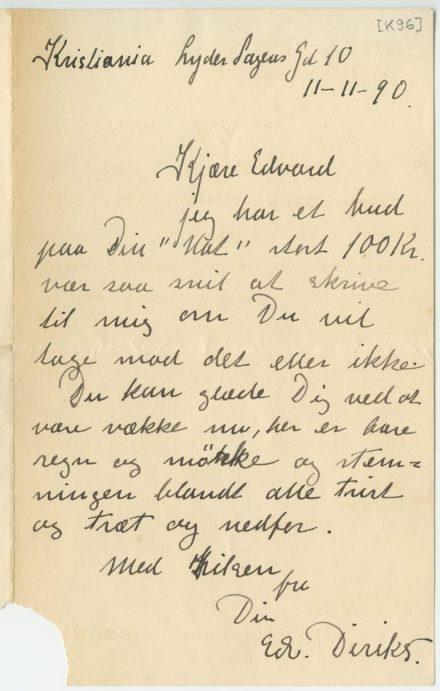 [K96]
Kristiania Lyder Sagens Gd 10
11-11-90.
Kjære Edvard
jeg har et bud
paa Din "Nat" stort 100 Kr.
vær saa snil at skrive
til mig om Du vil
tage mod det eller ikke.
Du kan glæde Dig ved at
være vække nu, her er bare
regn og mørke og stem=
ningen blandt alle trist
og træt og nedfor.
Med Hilsen
fra
Din
Edv. Diriks.